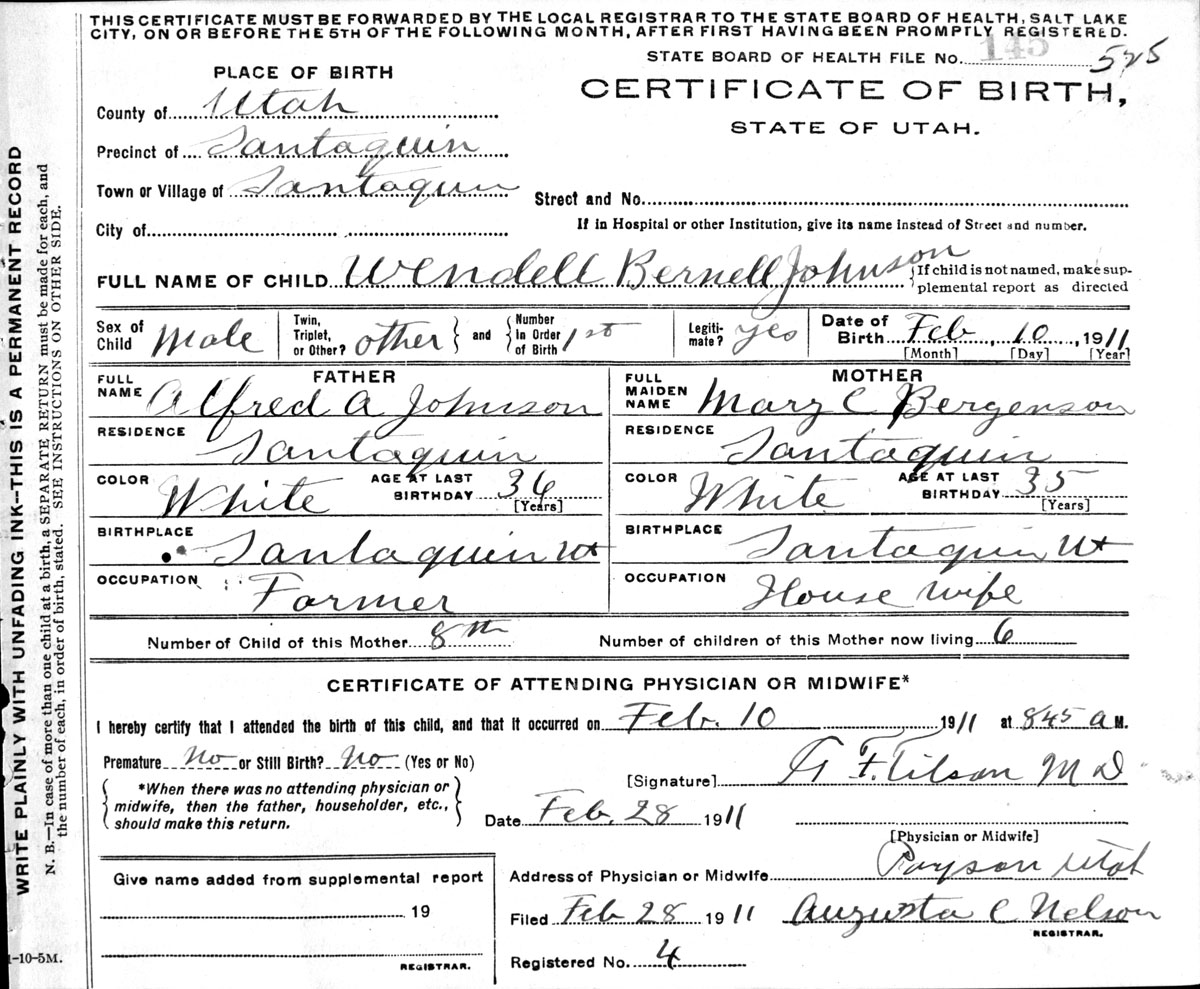 THIS CERTIFICATE MUST BE FORWARDED BY THE LOCAL REGISTRAR TO THE STATE BOARD OF HEALTH, SALT LAKE
CITY, ON OR BEFORE THE 5TH OF THE FOLLOWING MONTH, AFTER FIRST HAVING BEEN PROMPTLY REGISTERED.
STATE BOARD OF HEALTH FILE No. 145 525
PLACE OF BIRTH
CERTIFICATE OF BIRTH,
STATE OF UTAH.
County of Utah
Precinct of Santaquin
Town or Village of Santaquin
Street and No.
City of
If in Hospital or other Institution, give its name instead of Street and number.
FULL NAME OF CHILD Wendell Bernell Johnson
{If child is not named, make sup-
plemental report as directed
Sex of Child Male
Twin, Triplet, or Other? other } and { Number in Order of Birth 1st
Legiti-mate? yes
Date of Birth Feb, 10, 1911
[Month] [Day] [Year]
FATHER
FULL NAME Alfred A Johnson
RESIDENCE Santaquin
COLOR White AGE AT LAST BIRTHDAY 36
[Years]
BIRTHPLACE Santaquin Ut
OCCUPATION Farmer
MOTHER
FULL MAIDEN NAME Mary C Bergenson
RESIDENCE Santaquin
COLOR White AGE AT LAST BIRTHDAY 35
[Years]
BIRTHPLACE Santaquin Ut
OCCUPATION House wife
Number of Child of this Mother 8th Number of children of this Mother now living 6
CERTIFICATE OF ATTENDING PHYSICIAN OR MIDWIFE*
I hereby certify that I attended the birth of this child, and that it occurred on Feb. 10 1911 at 845 a M.
Premature No or Still Birth? No (Yes or No)
*When there was no attending physician or
midwife, then the father, householder, etc.,
should make this return.
[Signature] F. Tilson M D
Date Feb. 28 1911
[Physician or Midwife]
Address of Physician or Midwife Payson Utah
Give name added from supplemental report
19
REGISTRAR.
Filed Feb 28 1911 Augusta C Nelson
REGISTRAR.
Registered No. 4
WRITE PLAINLY WITH UNFADING INK--THIS IS A PERMANENT RECORD
N. B.—In case of more than one child at a birth, a SEPARATE RETURN must be made for each, and
the number of each, in order of birth, stated. SEE INSTRUCTIONS ON OTHER SIDE.
1-10-5M.